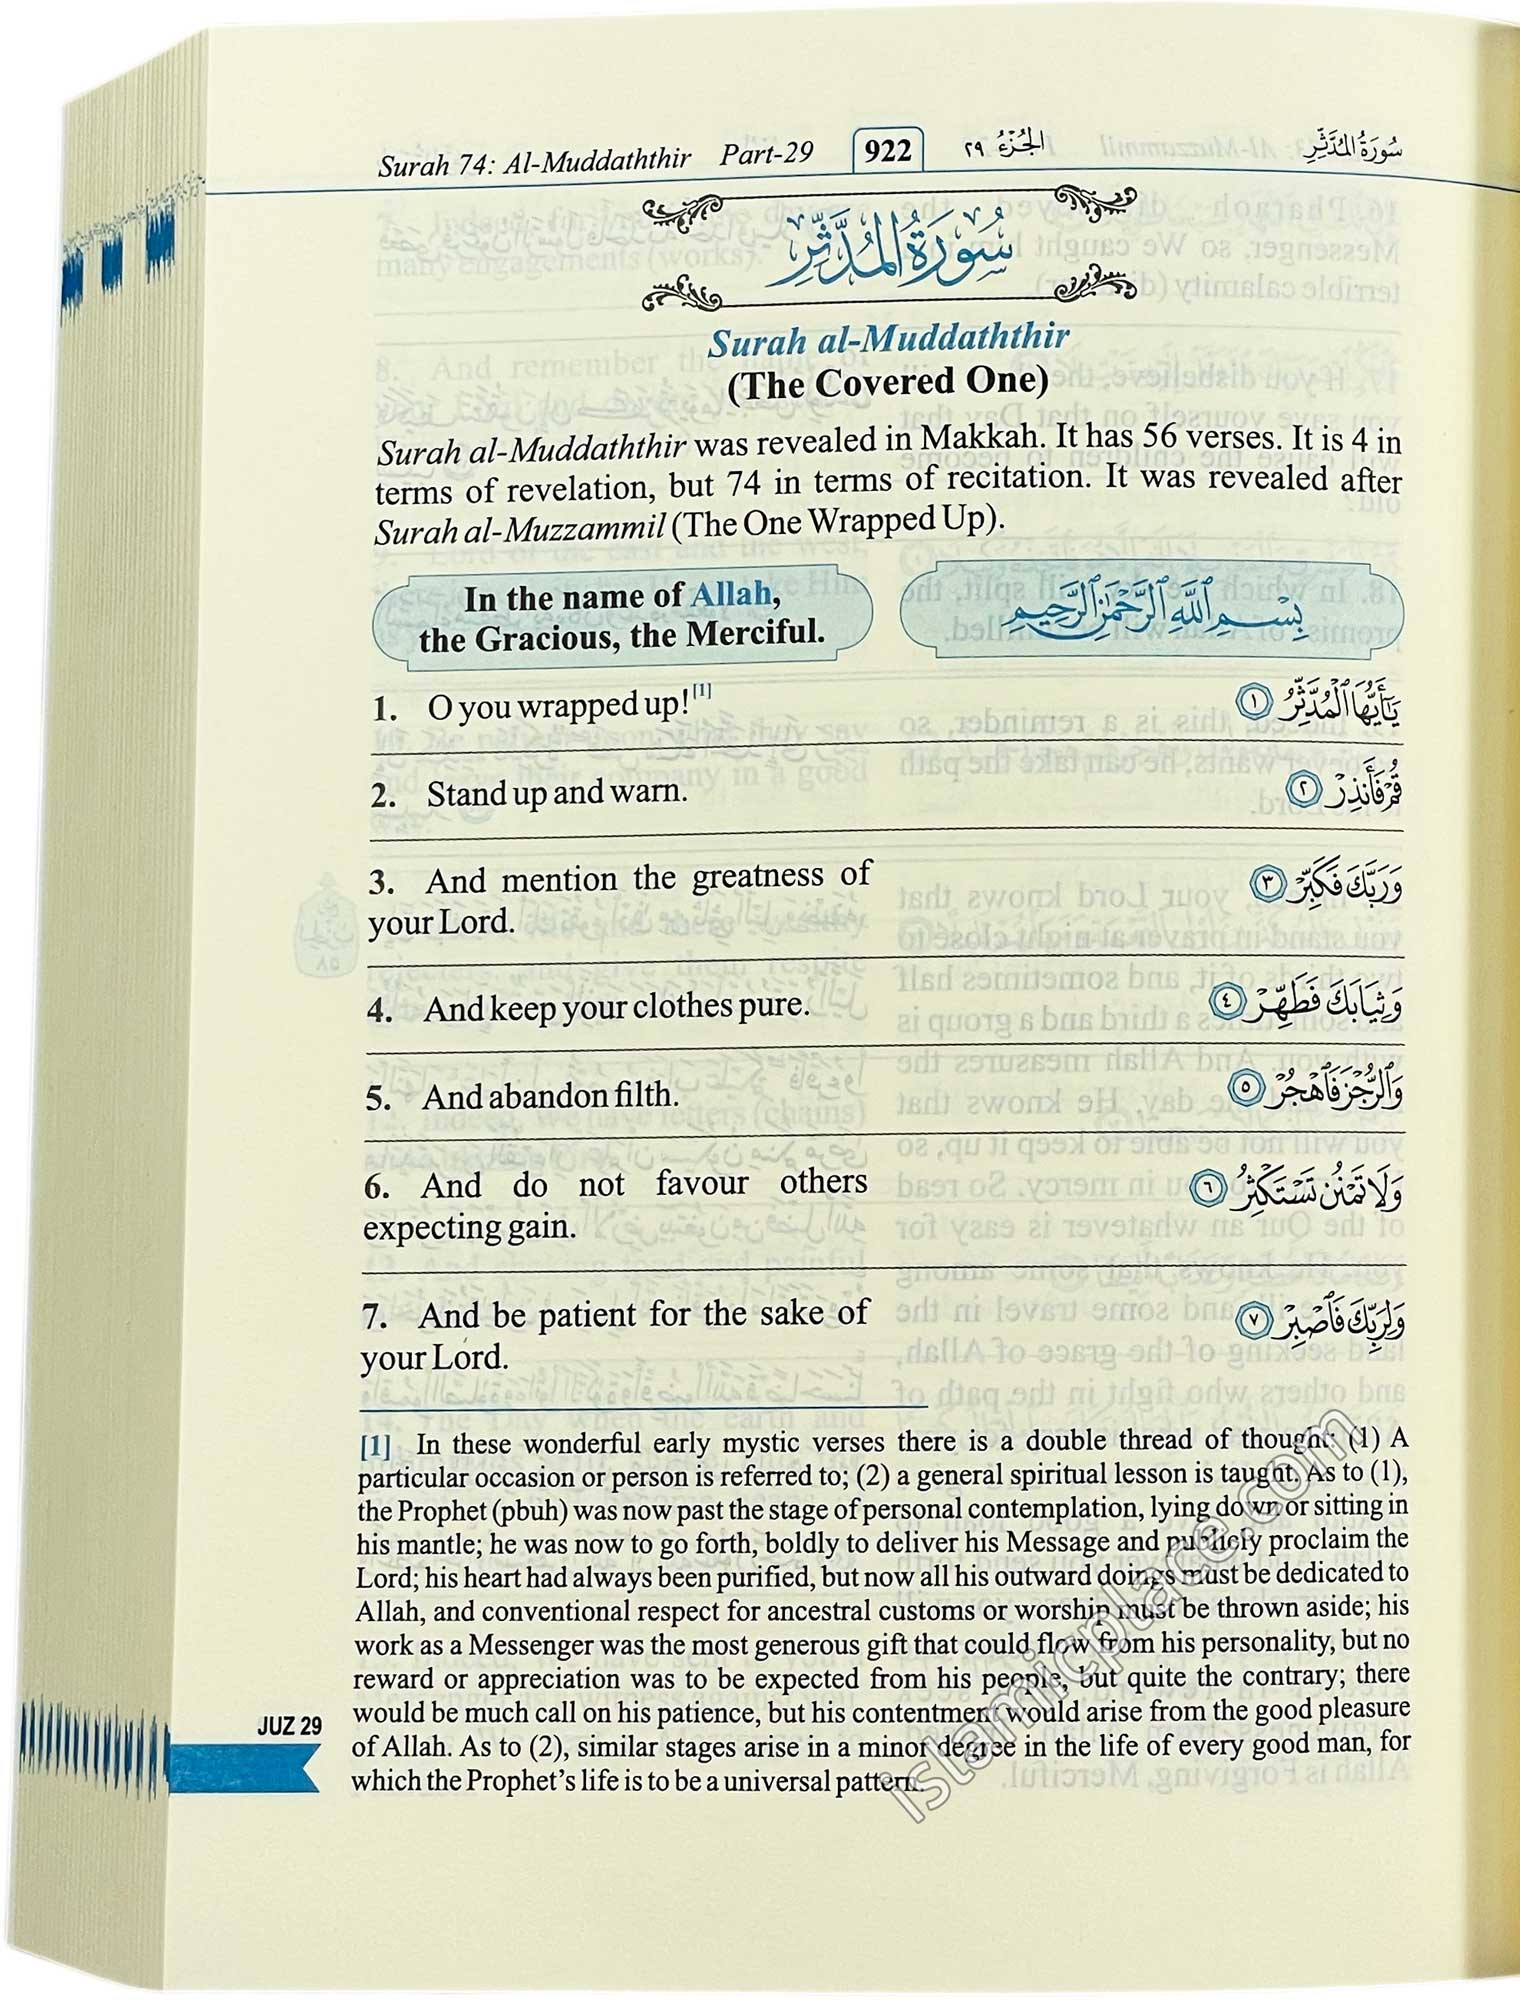 Surah 74: Al-Muddaththir Part-29 922 الجُزْءُ ٢٩ سُورَةُ المُدَّثِّرِ
سُورَةُ المُدَّثِّرِ
Surah al-Muddaththir
(The Covered One)
Surah al-Muddaththir was revealed in Makkah. It has 56 verses. It is 4 in
terms of revelation, but 74 in terms of recitation. It was revealed after
Surah al-Muzzammil (The One Wrapped Up).
In the name of Allah,
the Gracious, the Merciful.
بِسْمِ ٱللَّهِ ٱلرَّحْمَٰنِ ٱلرَّحِيمِ
1. O you wrapped up![1]
يَٰٓأَيُّهَا ٱلْمُدَّثِّرُ ١
2. Stand up and warn.
قُمْ فَأَنذِرْ ٢
3. And mention the greatness of
your Lord.
وَرَبَّكَ فَكَبِّرْ ٣
4. And keep your clothes pure.
وَثِيَابَكَ فَطَهِّرْ ٤
5. And abandon filth.
وَٱلرُّجْزَ فَٱهْجُرْ ٥
6. And do not favour others
expecting gain.
وَلَا تَمْنُن تَسْتَكْثِرُ ٦
7. And be patient for the sake of
your Lord.
وَلِرَبِّكَ فَٱصْبِرْ ٧
[1] In these wonderful early mystic verses there is a double thread of thought: (1) A
particular occasion or person is referred to; (2) a general spiritual lesson is taught. As to (1),
the Prophet (pbuh) was now past the stage of personal contemplation, lying down or sitting in
his mantle; he was now to go forth, boldly to deliver his Message and publicly proclaim the
Lord; his heart had always been purified, but now all his outward doings must be dedicated to
Allah, and conventional respect for ancestral customs or worship must be thrown aside; his
work as a Messenger was the most generous gift that could flow from his personality, but no
reward or appreciation was to be expected from his people, but quite the contrary; there
would be much call on his patience, but his contentment would arise from the good pleasure
of Allah. As to (2), similar stages arise in a minor degree in the life of every good man, for
which the Prophet's life is to be a universal pattern.
JUZ 29
islamicplace.com